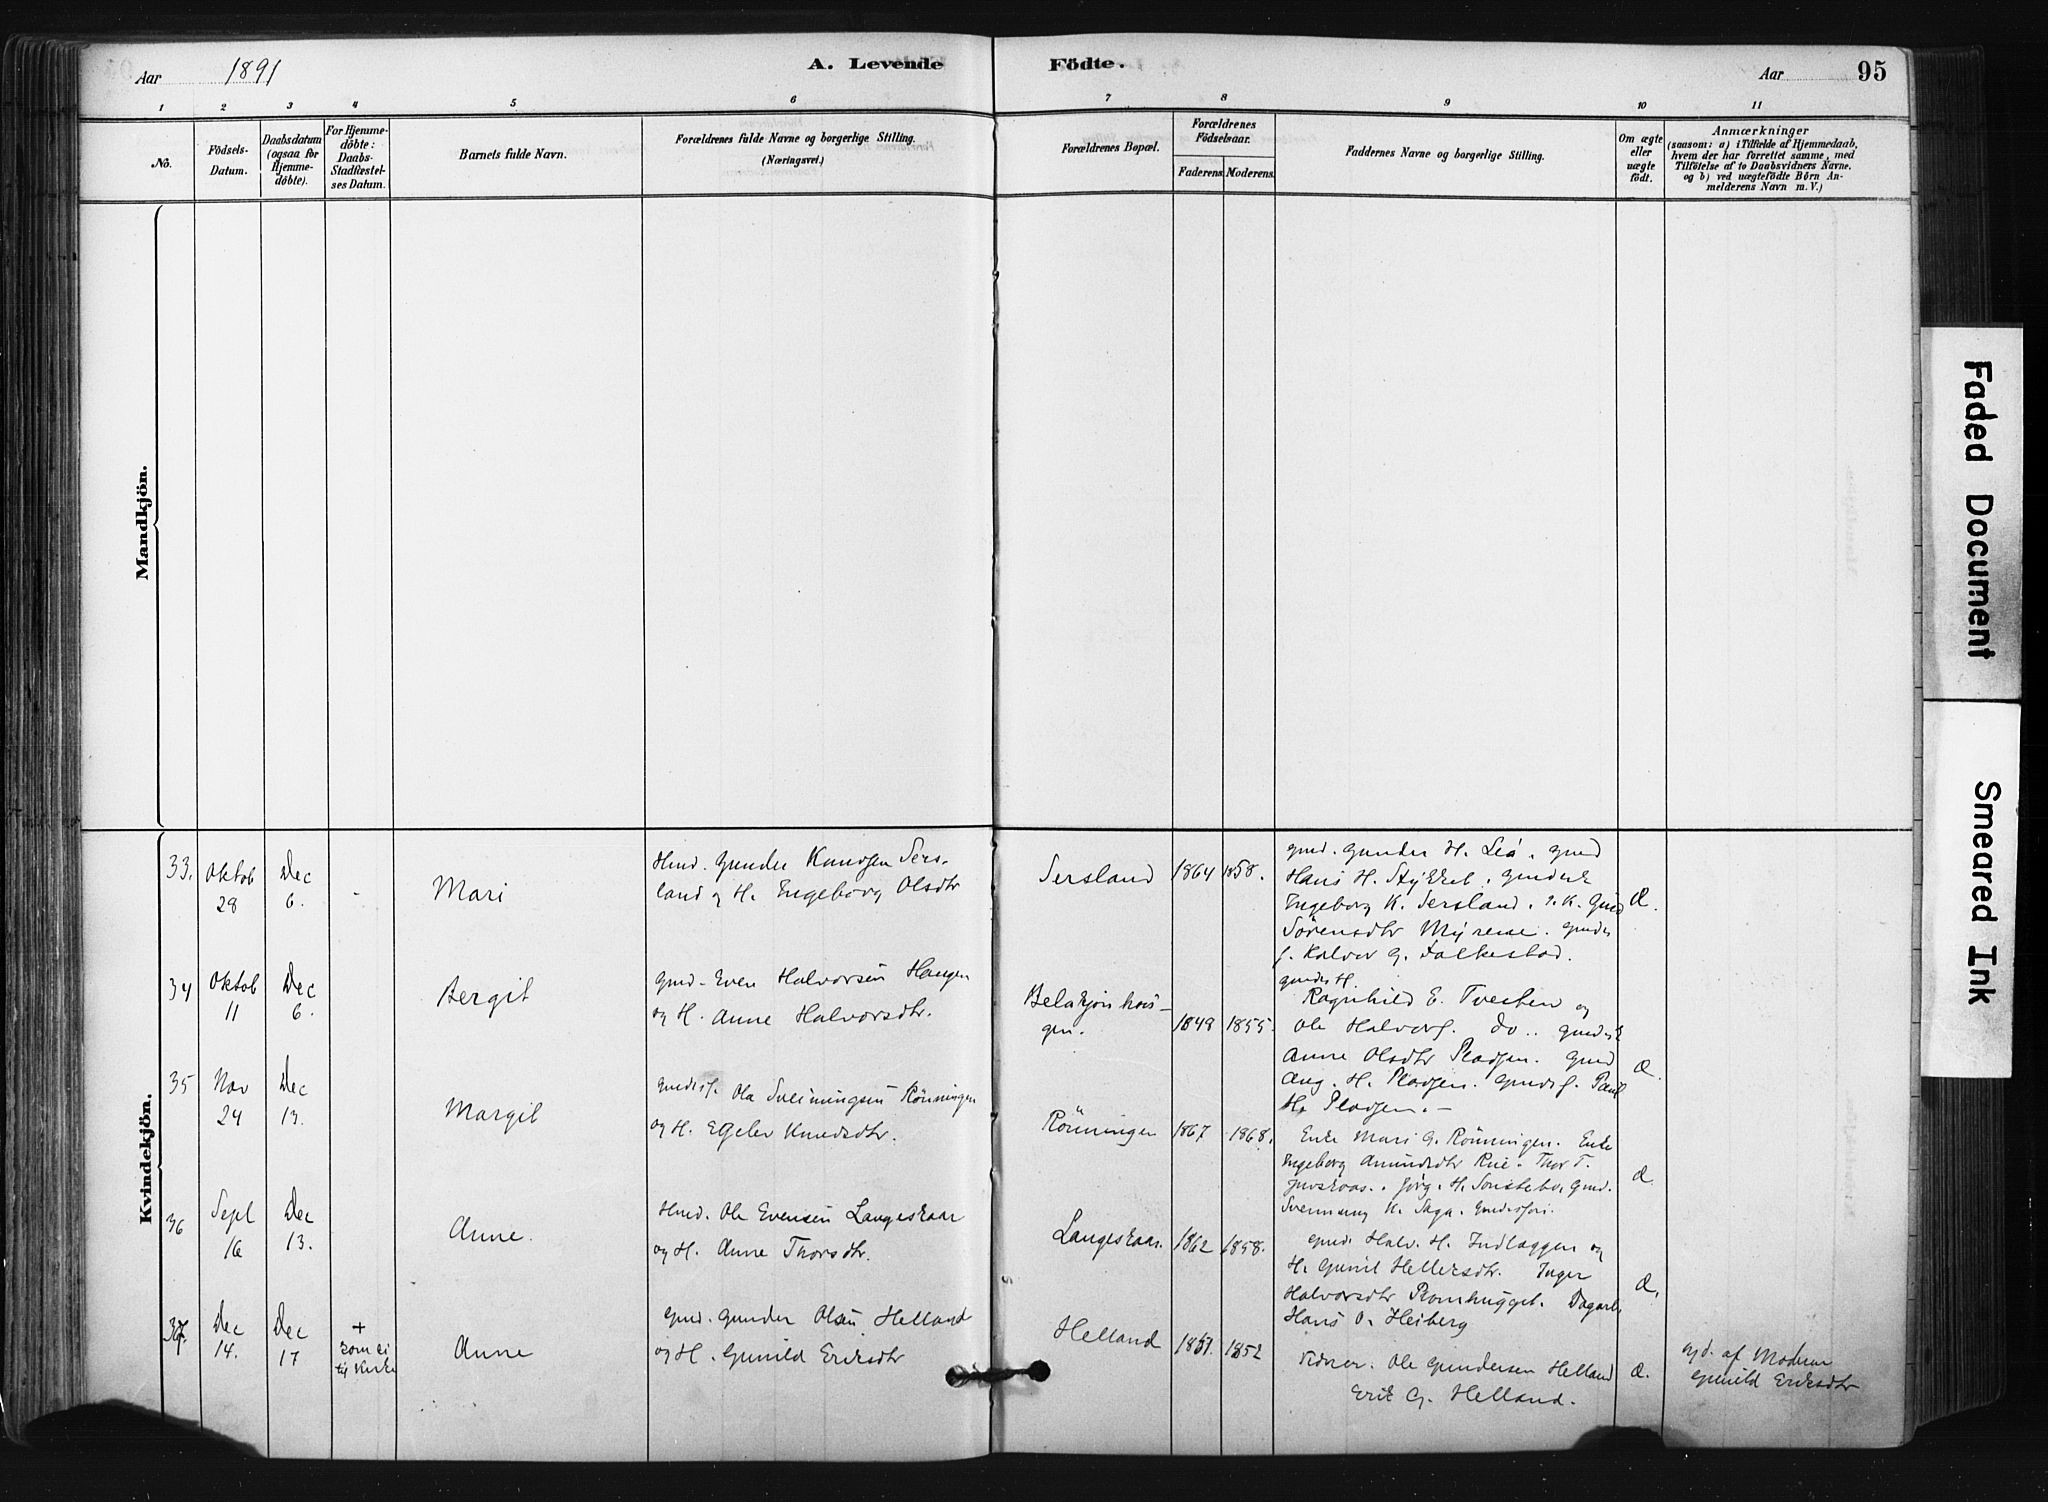 Aar 1891
A. Levende Födte.
Aar 95
1 2 3 4 5 6 7 8 9 10 11
No.
Födsels-
Datum.
Daabsdatum
(ogsaa for
Hjemme-
døbte).
For Hjemme-
döbte:
Daabs-
Stadfæstel-
ses Datum.
Barnets fulde Navn.
Forældrenes fulde Navne og borgerlige Stilling.
(Næringsvei.)
Forældrenes Bopæl.
Forældrenes
Födselsaar.
Faderens. Moderens.
Faddernes Navne og borgerlige Stilling.
Om ægte
eller
uægte
födt.
Anmærkninger
(saasom: a) i Tilfælde af Hjemmedaab,
hvem der har forrettet samme, med
Tilföielse af to Daabsvidners Navne,
og b) ved uægtefödte Börn An-
melderens Navn m. V.)
Mandkjön.
Kvindekjön.
33. Oktob 28
Dec 6.
-
Mari
Hmd. Gunder Knudsen Sers-
land og H. Ingeborg Olsdtr
Sersland
1864 1858.
gmd. Gunder H. Leá. gmd
Hans H. Stykket. gmdsk
Ingeborg K. Sersland.
Sörensdtr Myrene. gmds
f. Halvor G. Falkestad.
Æ.
34 Oktob 11
Dec 6.
Bergit
gmd. Even Halvorsen Haugen
og H. Anne Halvorsdtr.
gen.
1849 1855.
gmds H.
Ragnhild E. Tveiten og
Ole Halvors. do.. gmdsk
Anne Olsdtr Pladsen. gmd
Aug. H. Pladsen. gmdsf. Paul
H. Pladsen.-
Æ.
35 Nov 24
Dec 13.
Margit
gmdsf. Ole Sveinungsen Rönningen
og H. Egelev Knudsdtr.
Rönningen
1867 1868.
Enke Mari G. Rönningen. Enke
Ingeborg Amundsdtr Rue. Thor T.
Jörg. H. Sönstebo. gmd.
Svennung K. Saga.
Æ.
36 Sept 16
Dec 13.
Anne.
Hmd. Ole Evensen Langeskaar
og H. Anne Thorsdtr.
Langeskaar.
1862 1858.
gmd. Halv. H. Indlæggen og
H. Gunil Hellersdtr. Inger
Halvorsdtr Romhugget. Dagarb.
Hans O. Heiberg
Æ.
37. Dec 14.
Dec 17
+
kom ei
til Kirke
Anne
Gmd. Gunder Olsen Helland
og H. Gunild Eriksdtr
Helland
1851. 1852
Vidner. Ole Gundersen Helland
Erik G. Helland.
Æ.
gjd. af Modrene
Gunild Eriksdtr
Faded Document
Smeared Ink